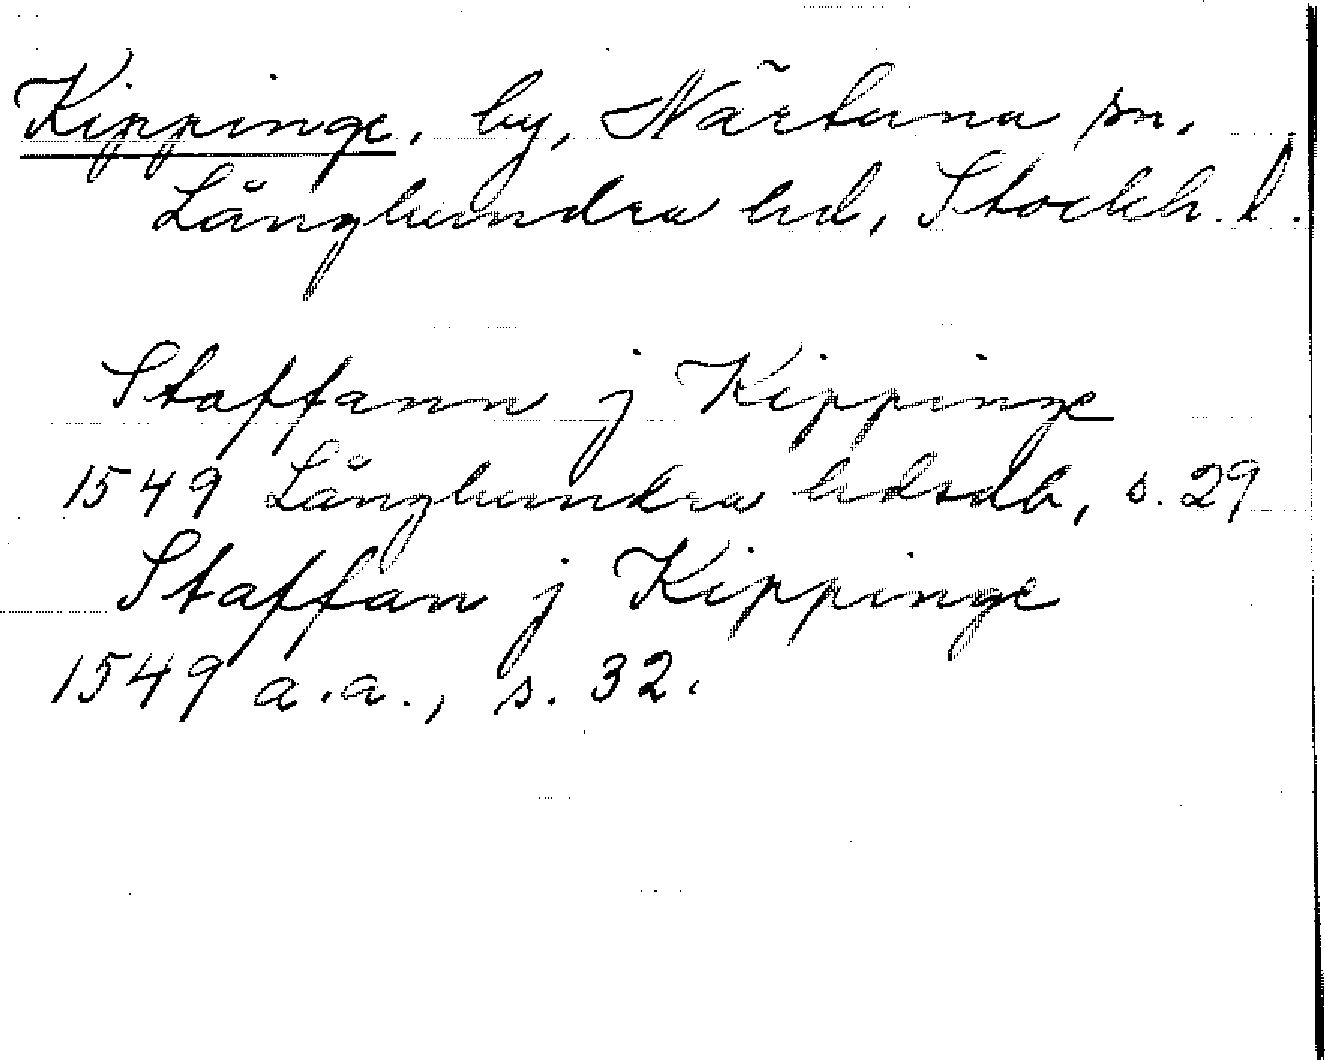 Kippinge, by, Närtuna sn,
Långhundra hd, Stockh. l.
Staffann j Kippinge
1549 Långhundra hdsdb, s. 29
Staffan j Kippinge
1549 a.a., s. 32.